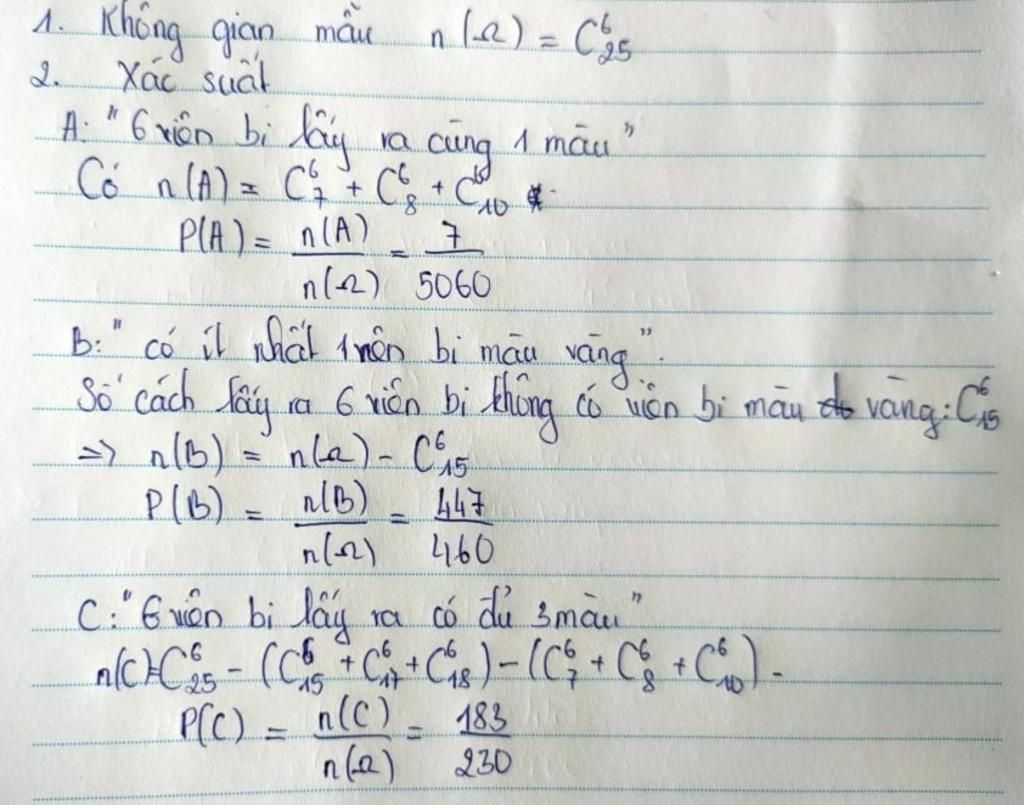 1. Không gian mẫu n(Ω) = C⁶₂₅
2. Xác suất
A: "6 viên bi lấy ra cùng 1 màu"
Có n(A) = C⁶₇ + C⁶₈ + C⁶₁₀
P(A) = n(A)/n(Ω) = 7/5060
B: "có ít nhất 1 viên bi màu vàng".
Số cách lấy ra 6 viên bi không có viên bi màu vàng: C⁶₁₅
=> n(B) = n(Ω) - C⁶₁₅
P(B) = n(B)/n(Ω) = 447/460
C: "6 viên bi lấy ra có đủ 3 màu"
n(C) = C⁶₂₅ - (C⁶₁₅ + C⁶₁₇ + C⁶₁₈) - (C⁶₇ + C⁶₈ + C⁶₁₀) -
P(C) = n(C)/n(Ω) = 183/230